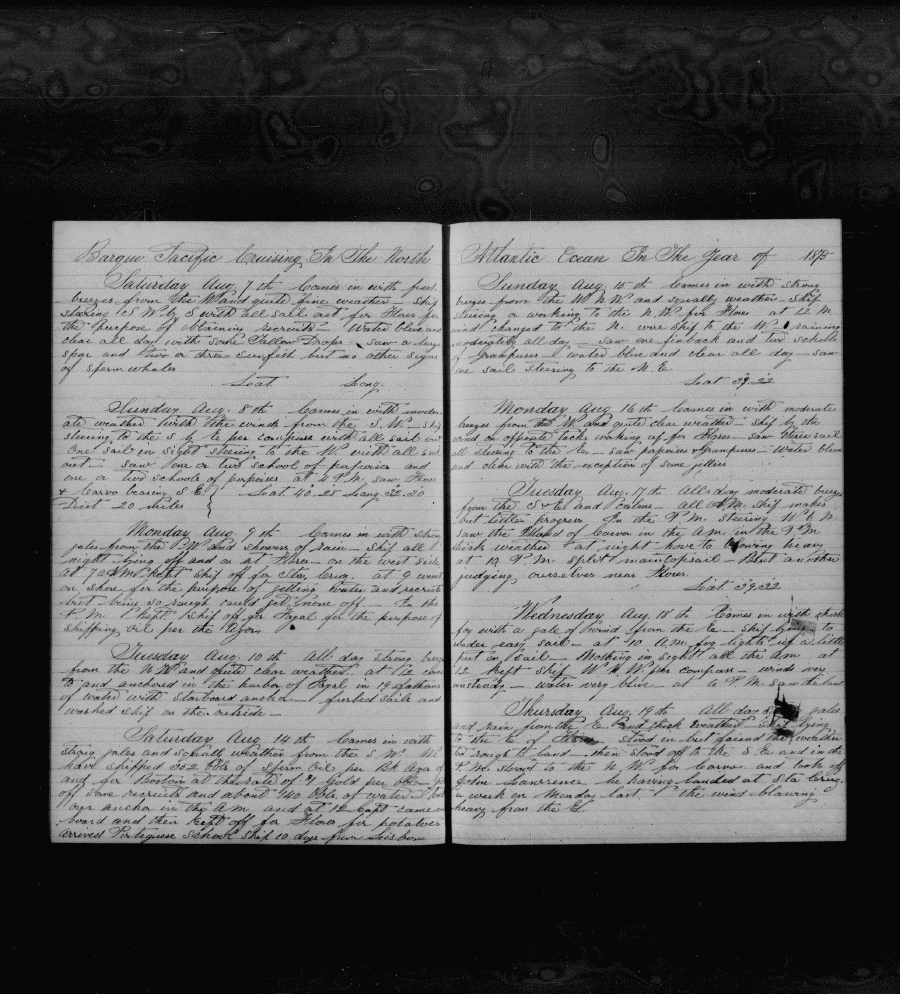 Barque Pacific Cruising In The North
Saturday Aug 7th Comes in with fresh
breezes from the W and quite fine weather — Ship
stearing S W b S with all sail out for Flores for
the purpose of obtaining recruits — Water blue and
clear all day with some Tallow Drops — saw a large
spar and two or three sun fish but no other signs
of sperm whales
Lat Long.
Sunday Aug. 8th Comes in with moder
ate weather with the winds from the S. W — Ship
steering to the S b E per compass with all sail out
One sail in sight steering to the W with all sail
out — saw one or two school of porpoises and
one or two schools of porpoises at 4 P.M. saw Flores
& Corvo bearing S E Lat 40.28 Long 32.30
Dist 20 miles
Monday Aug. 9th Comes in with strong
gales from the S W and showers of rain — Ship all
night lying off and on at Flores — on the west side
at 7 A M kept Ship off for Sta Cruz. at 9 went
on shore for the purpose of getting water and recruits
but being so rough could get none off — In the
P.M. kept Ship off for Fayal for the purpose of
shipping oil per the Azor
Tuesday Aug. 10th All day strong breezes
from the N W and quite clear weather. at 12 came
to and anchored in the harbor of Fayal in 19 fathoms
of water with starboard anchor — furled sails and
worked ship on the outside —
Saturday Aug. 14th Comes in with
strong gales and squally weather from the S. W. We
have shipped 362 bbls of Sperm Oil per Bk Azor
and for Boston at the rate of Gold per
off some recruits and about 140 bbls of water
our anchor in the A M and at 12 Capt came on
board and then kept off for Flores for potatoes
arrived Portuguese School Ship 10 days from Lisbon
Atlantic Ocean In The Year of 1875
Sunday Aug 15th Comes in with strong
breezes from the W N W and squally weather. Ship
steering or working to the N. W. for Flores at 12 M
wind changed to the N. wore ship to the W raining
moderately all day — saw one finback and two schools
of grampuses — water blue and clear all day — saw
one sail steering to the N. E.
Lat 39.22
Monday Aug 16th Comes in with moderate
breezes from the W and quite clear weather — Ship by the
wind on opposite tacks working up for Flores — saw three sail
all steering to the E — saw porpoises & grampuses — water blue
and clear with the exception of some jellies
Tuesday Aug. 17th All day moderate breezes
from the S & E and calms — all A.M. Ship makes
but little progress. In the P.M. steering W b N
saw the Island of Corvo in the A M in the P M
thick weather at night hove to blowing heavy
at 10 P M split maintopsail — Bent another
judging ourselves near Flores
Lat 39.22
Wednesday Aug. 18th Comes in with thick
fog with a gale of wind from the E — Ship lying to
under easy sail — at 10 A.M. fog lights up a little
put on sail. Nothing in sight all the A M at
12 kept Ship W N W per compass — winds very
unsteady — water very blue — at 6 P.M. saw the land
Thursday Aug. 19th All day gales
and rain from the E and thick weather — Ship lying
to the E of Flores stood in but found the weather
too rough to land — then stood off to the S. E and in the
P.M. stood to the N W for Corvo and took off
John Lawrence he having landed at Sta Cruz
a week on Monday last the wind blowing
heavy from the E